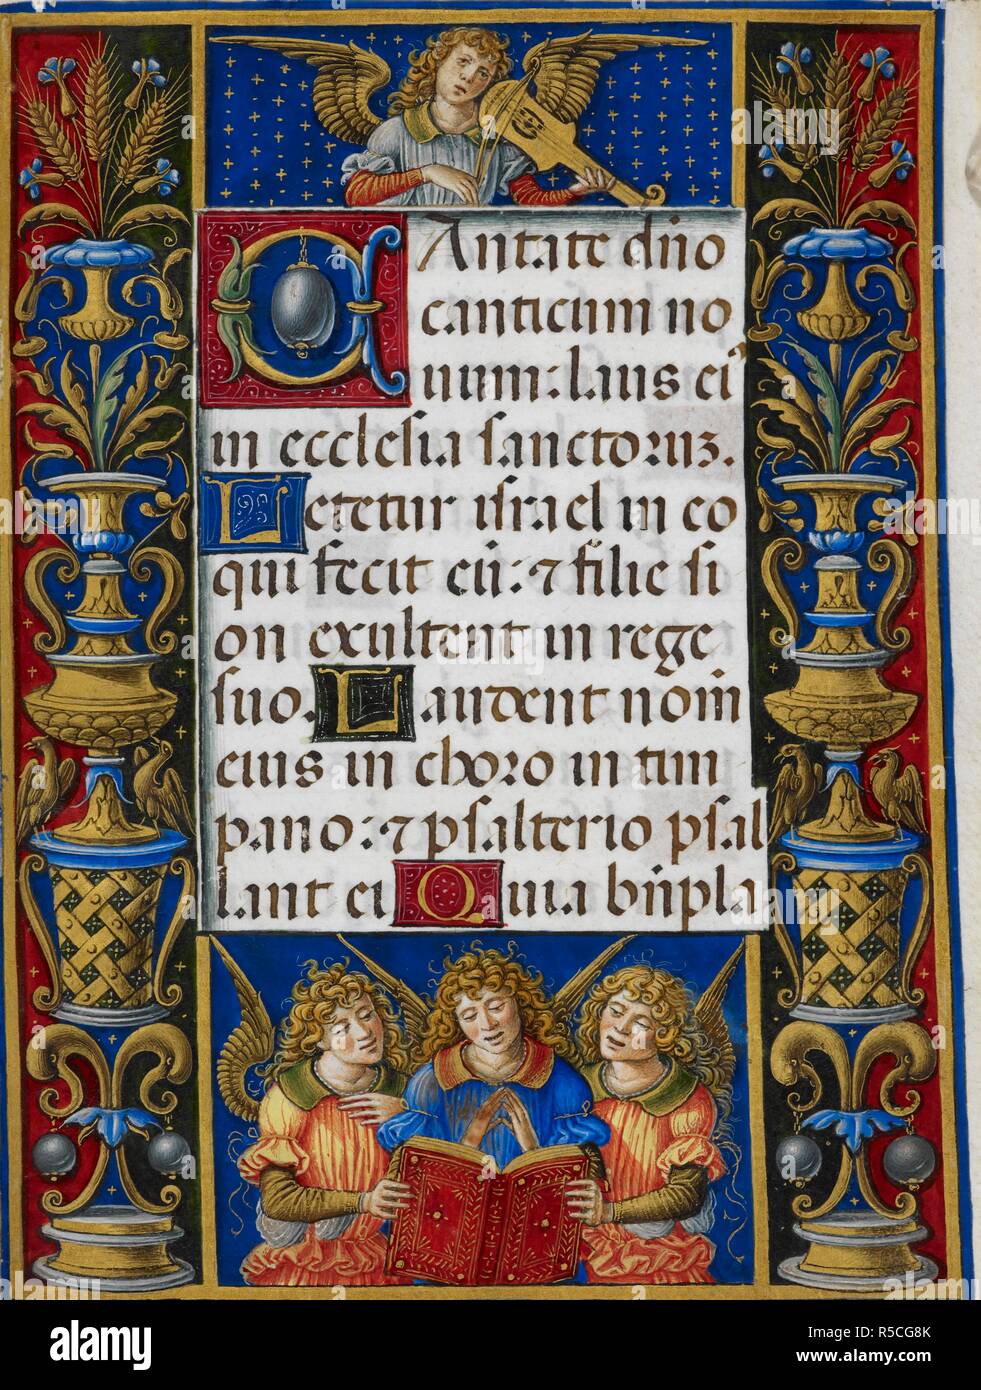 CAntate dño
canticum no
uum: laus ei⁹
in ecclesia sanctoruꝫ.
Letetur israel in eo
qui fecit eũ: ⁊ filie si
on exultent in rege
suo. Laudent nom̃
eius in choro in tim
pano: ⁊ psalterio psal
lant ei Quia bñpla
alamy
alamy
Image ID: R5CG8K
www.alamy.com